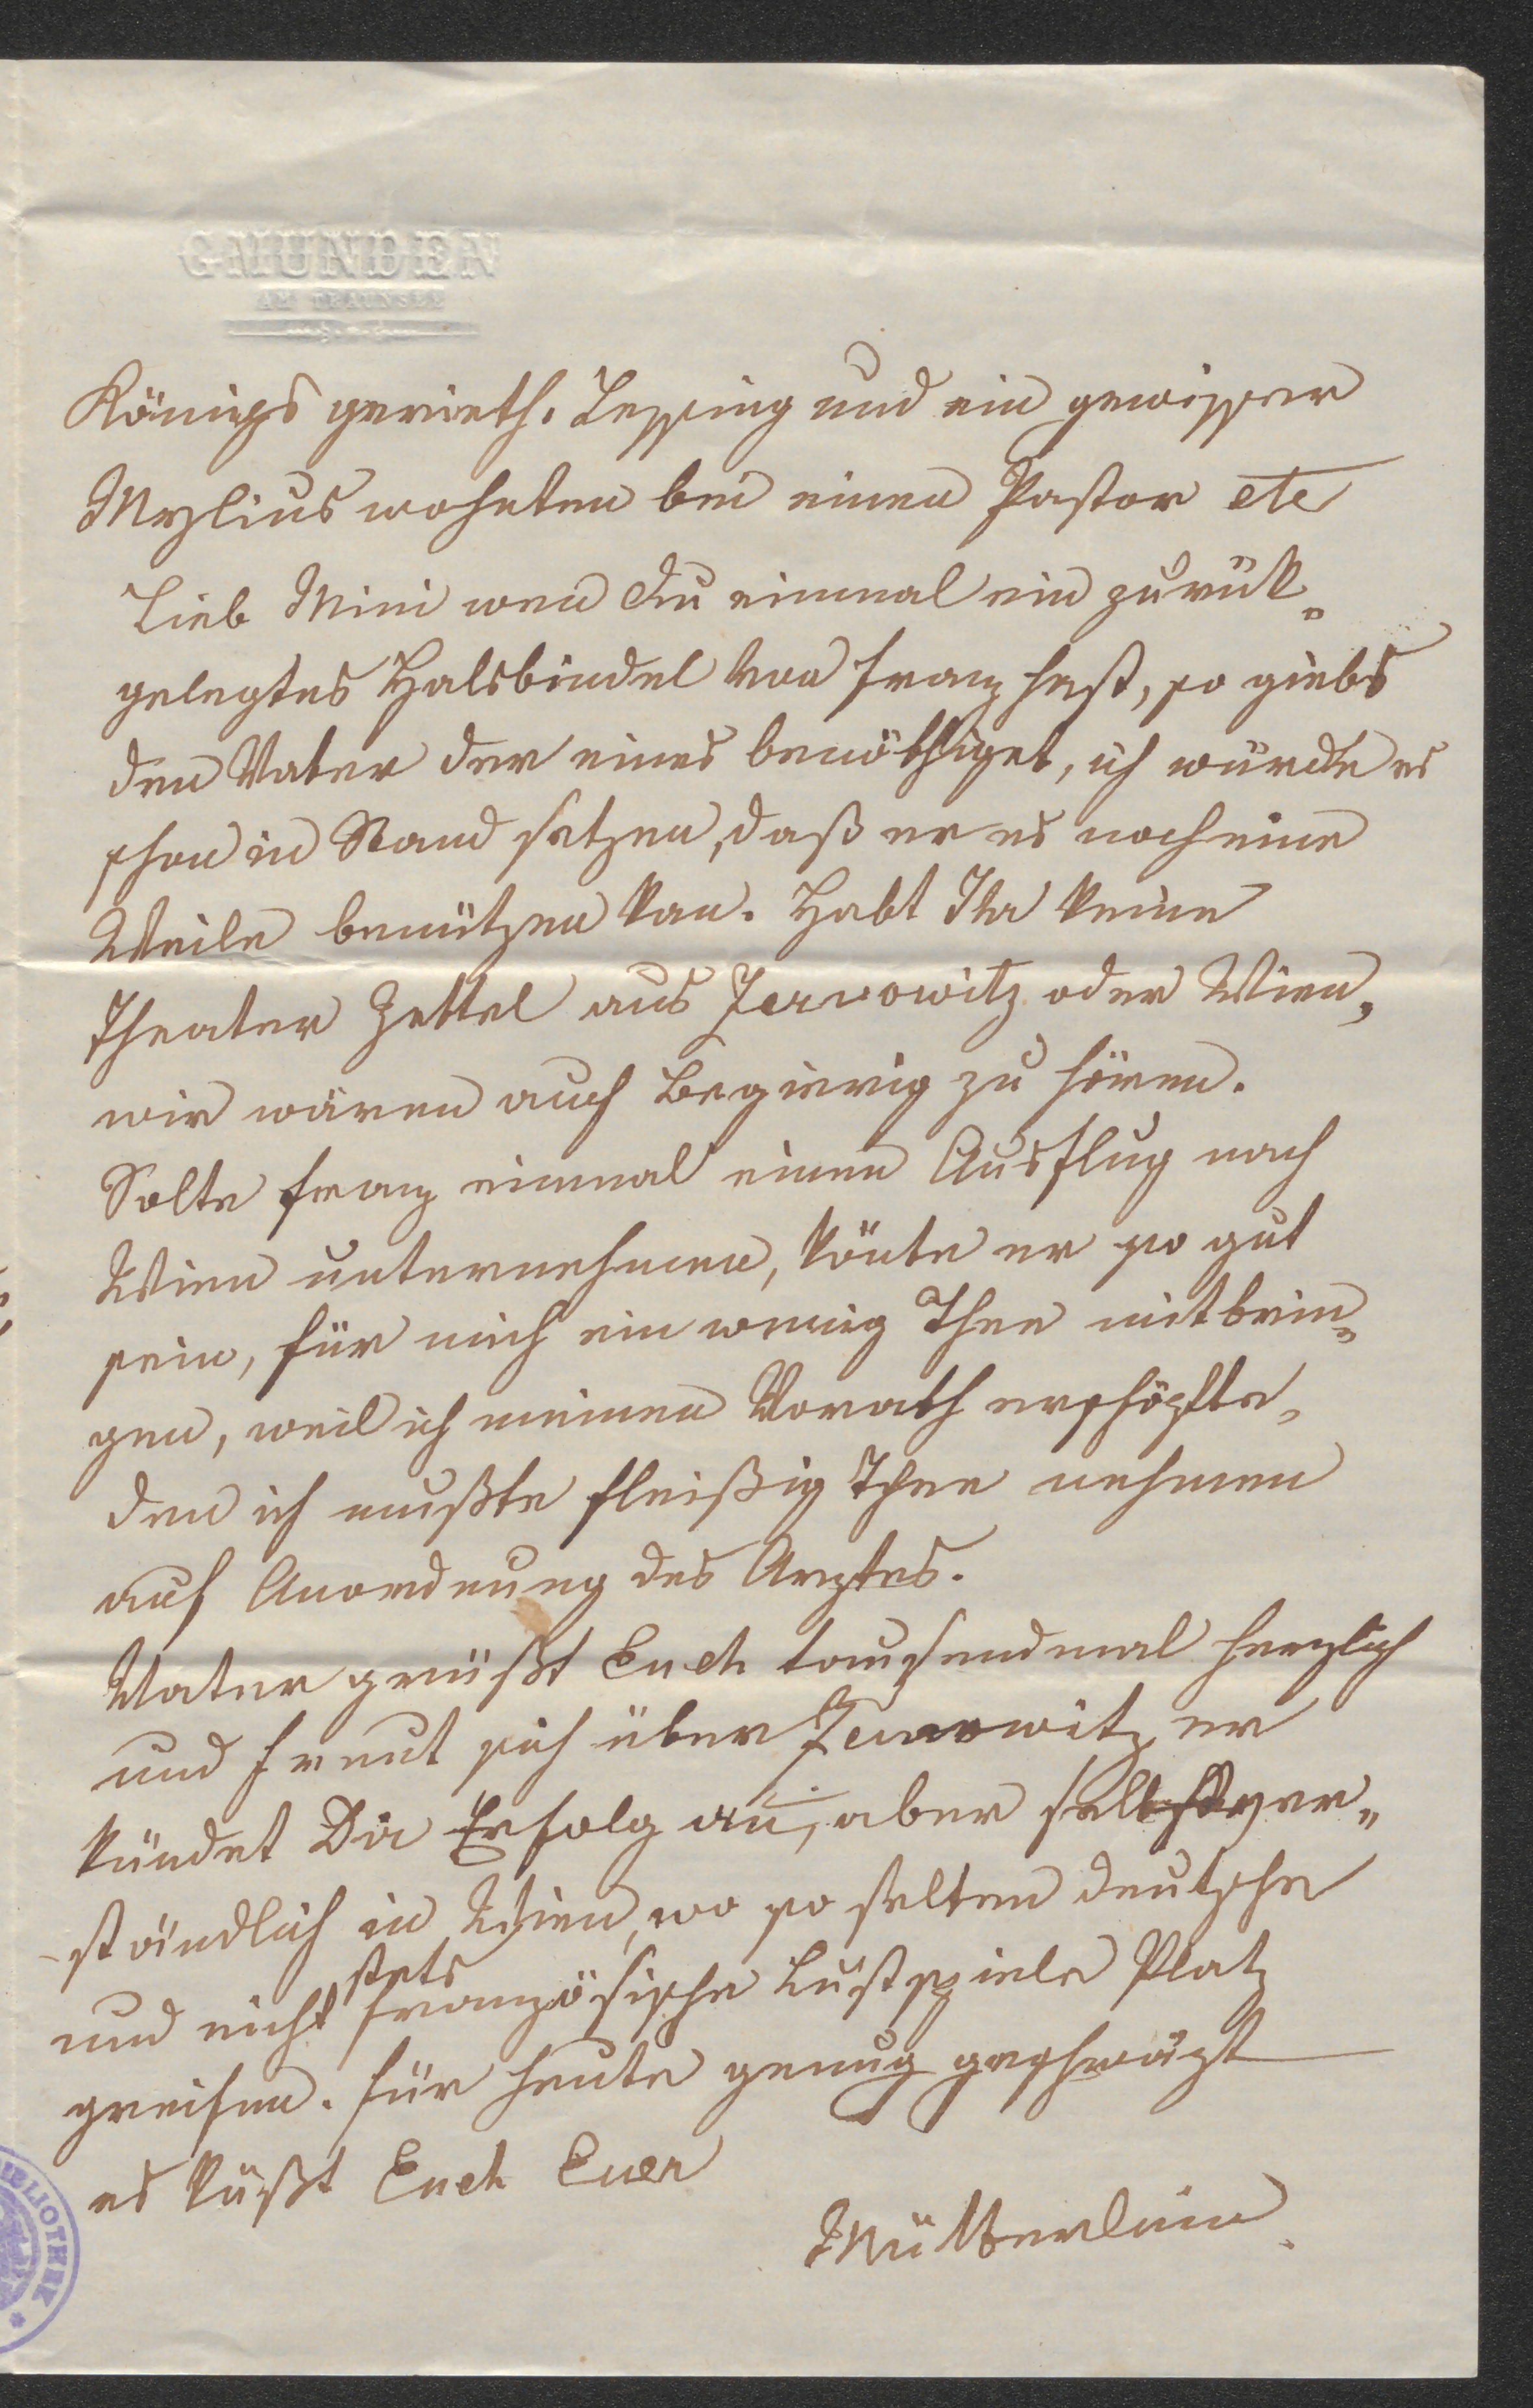 GMUNDEN
AM TRAUNSEE
Königs gerieth. Lessing und ein gewisser
Mylius wohnten bei einen Pastor etc
Lieb Mini wen Du einmal ein zurük„
gelegtes Halsbindel von Franz hast, so giebs
den Vater der eines benöthiget, ich würde es
schon in Stand setzen, daß er es noch eine
Weile benützen kan. Habt Ihr keine
Theater Zettel aus oder Wien,
wir wären auch begierig zu hören.
Solte Franz einmal einen Ausflug nach
Wien unternehmen, könte er so gut
sein, für mich ein wenig Thee mitbrin„
gen, weil ich meinen Vorath erschöpfte,
den ich mußte fleißig Thee nehmen
auf Anordnung des Arztes.
Vater grüßt Euch tausendmal herzlich
und freut sich über er
kündet Dir Erfolg an, aber selbstver„
ständlich in Wien, wo so selten deutsche
und nicht stets französische Lustspiele Platz
greifen. Für heute genug geschwäzt
es küßt Euch Euer
Mütterlein.
BIBLIOTHEK